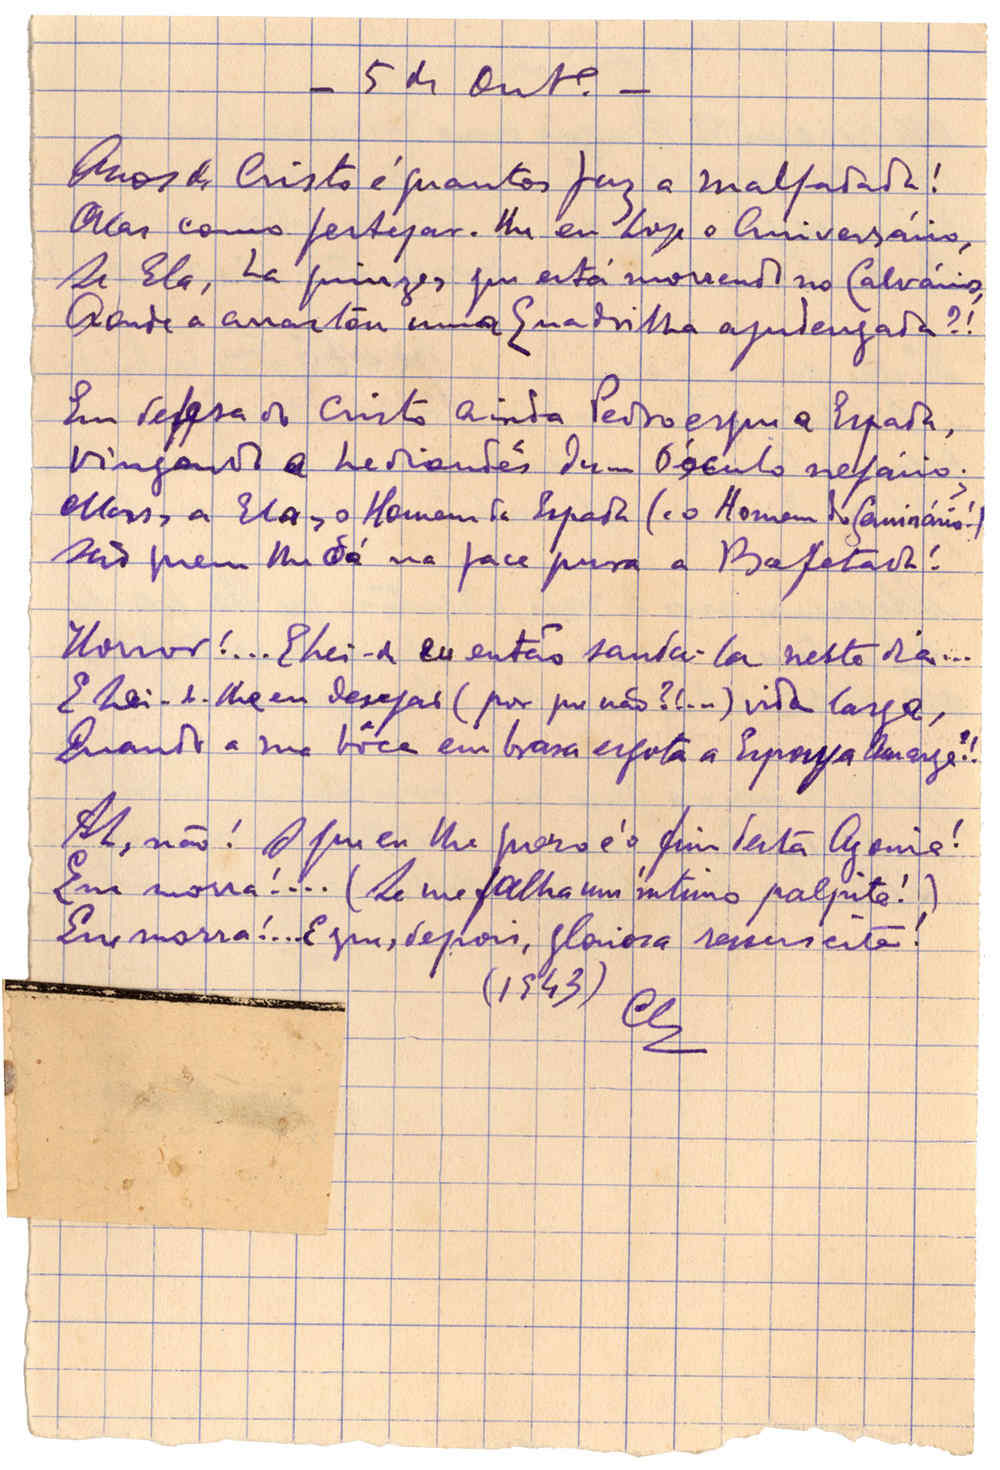 – 5 de Outº. –
Anos de Cristo é quantos faz a malfadada!
Mas como festejar-lhe eu hoje o Aniversário,
Se Ela, há quinze, que está morrendo no Calvário,
Aonde a arrastou uma Quadrilha ajudengada?!
Em defesa de Cristo ainda Pedro ergue a Espada,
Vingando a hediondês dum Ósculo nefário;
Mas, a Ela, o Homem da Espada (e o Homem do Seminário!)
São quem lhe dá na face pura a Bofetada!
Horror!... E hei-de eu então saudá-la neste dia...
E hei-de-lhe eu desejar (por que não?!...) vida larga,
Quando a sua bôca em brasa esgota a Esponja Amarga?!
Ah, não! O que eu lhe quero é o fim desta Agonia!
Que morra!.... (Se me falha um íntimo palpite!)
Que morra!... E que, depois, gloriosa ressuscite!
(1943)